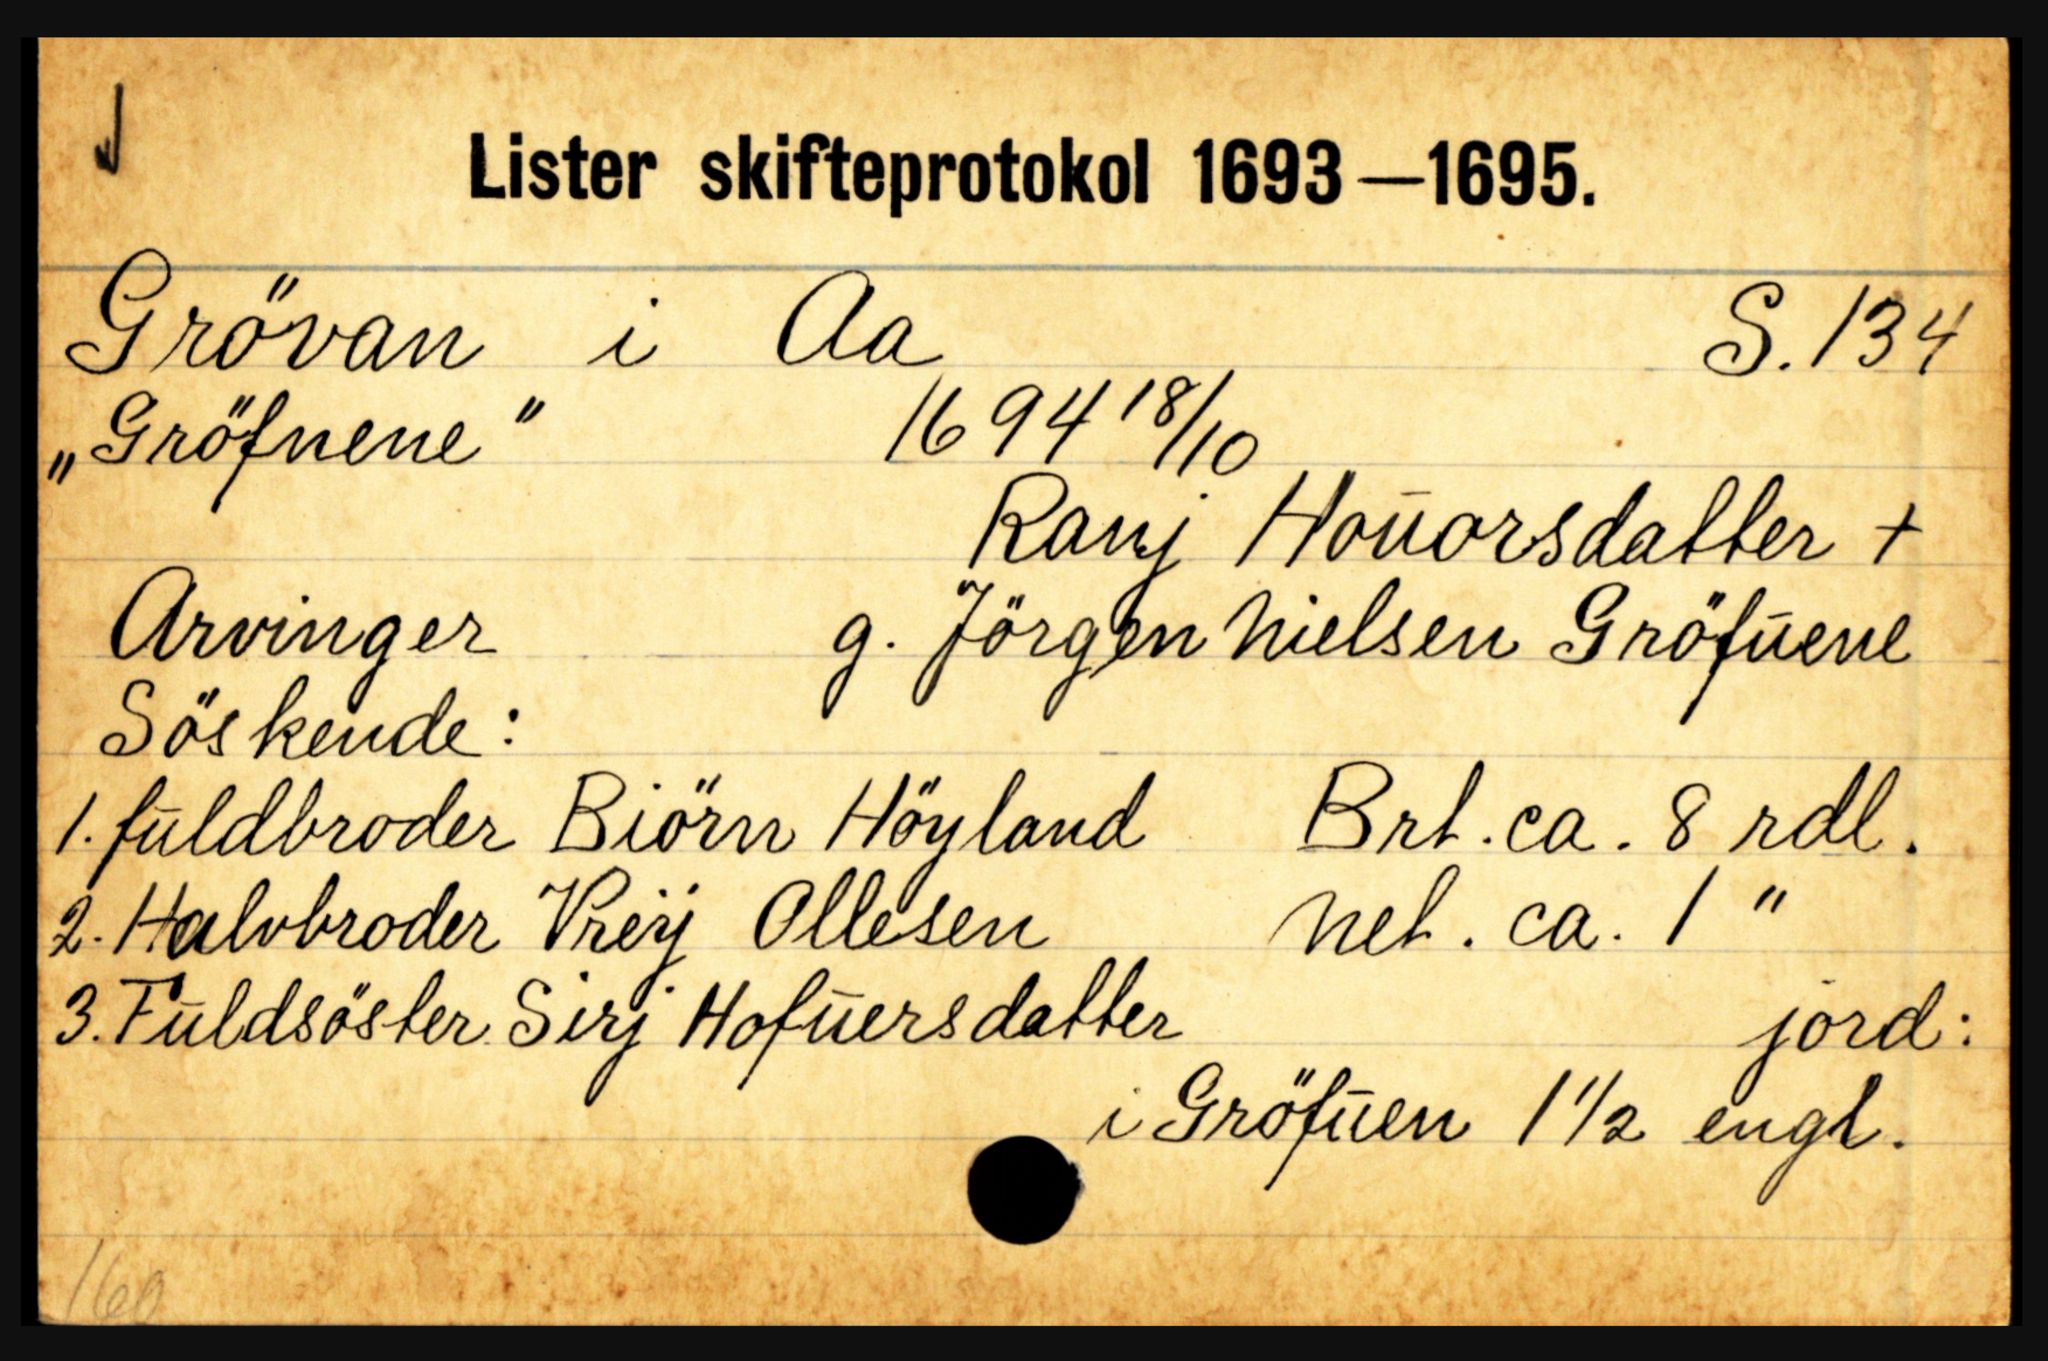 Lister skifteprotokol 1693—1695.
Grövan i Aa S. 134
„Gröfnene" 1694 18/10
Ranj Houorsdatter +
Arvinger g. Jörgen Nielsen Gröfuene
Söskende:
1. fuldbroder Biörn Höyland Brt. ca. 8 rdl.
2. Halvbroder Vreij Ollesen net. ca. 1 "
3. Fuldsöster Sirj Hofuersdatter jord:
i Gröfuen 1 1/2 engl.
160